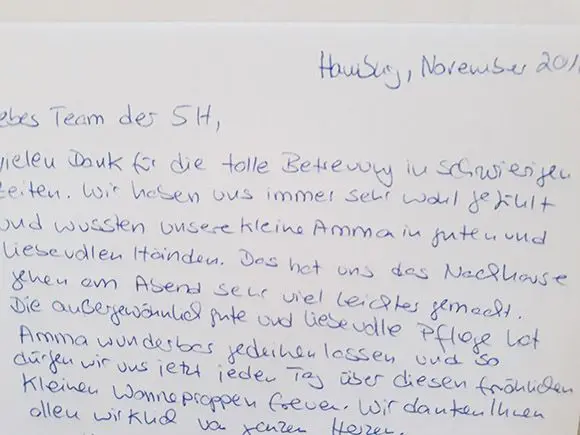 Hamburg, November 201
ebes Team der 5H,
vielen Dank für die tolle Betreuung in schwierigen
Zeiten. Wir haben uns immer sehr wohl gefühlt
und wussten unsere kleine Amma in guten und
liebevollen Händen. Das hat uns das Nachhause
gehen am Abend sehr viel leichter gemacht.
Die außergewöhnlich gute und liebevolle Pflege hat
Amma wunderbar gedeihen lassen und so
dürfen wir uns jetzt jeden Tag über diesen fröhlichen
kleinen Wonneproppen freuen. Wir danken Ihnen
allen wirklich von ganzen Herzen.